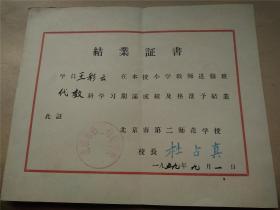 結業証書
学員王彩云在本校小学教师进修班
代数科学习期滿成績及格准予結業
此証
北京市第二师范学校
校長 杜占真
一九五九年九月一日